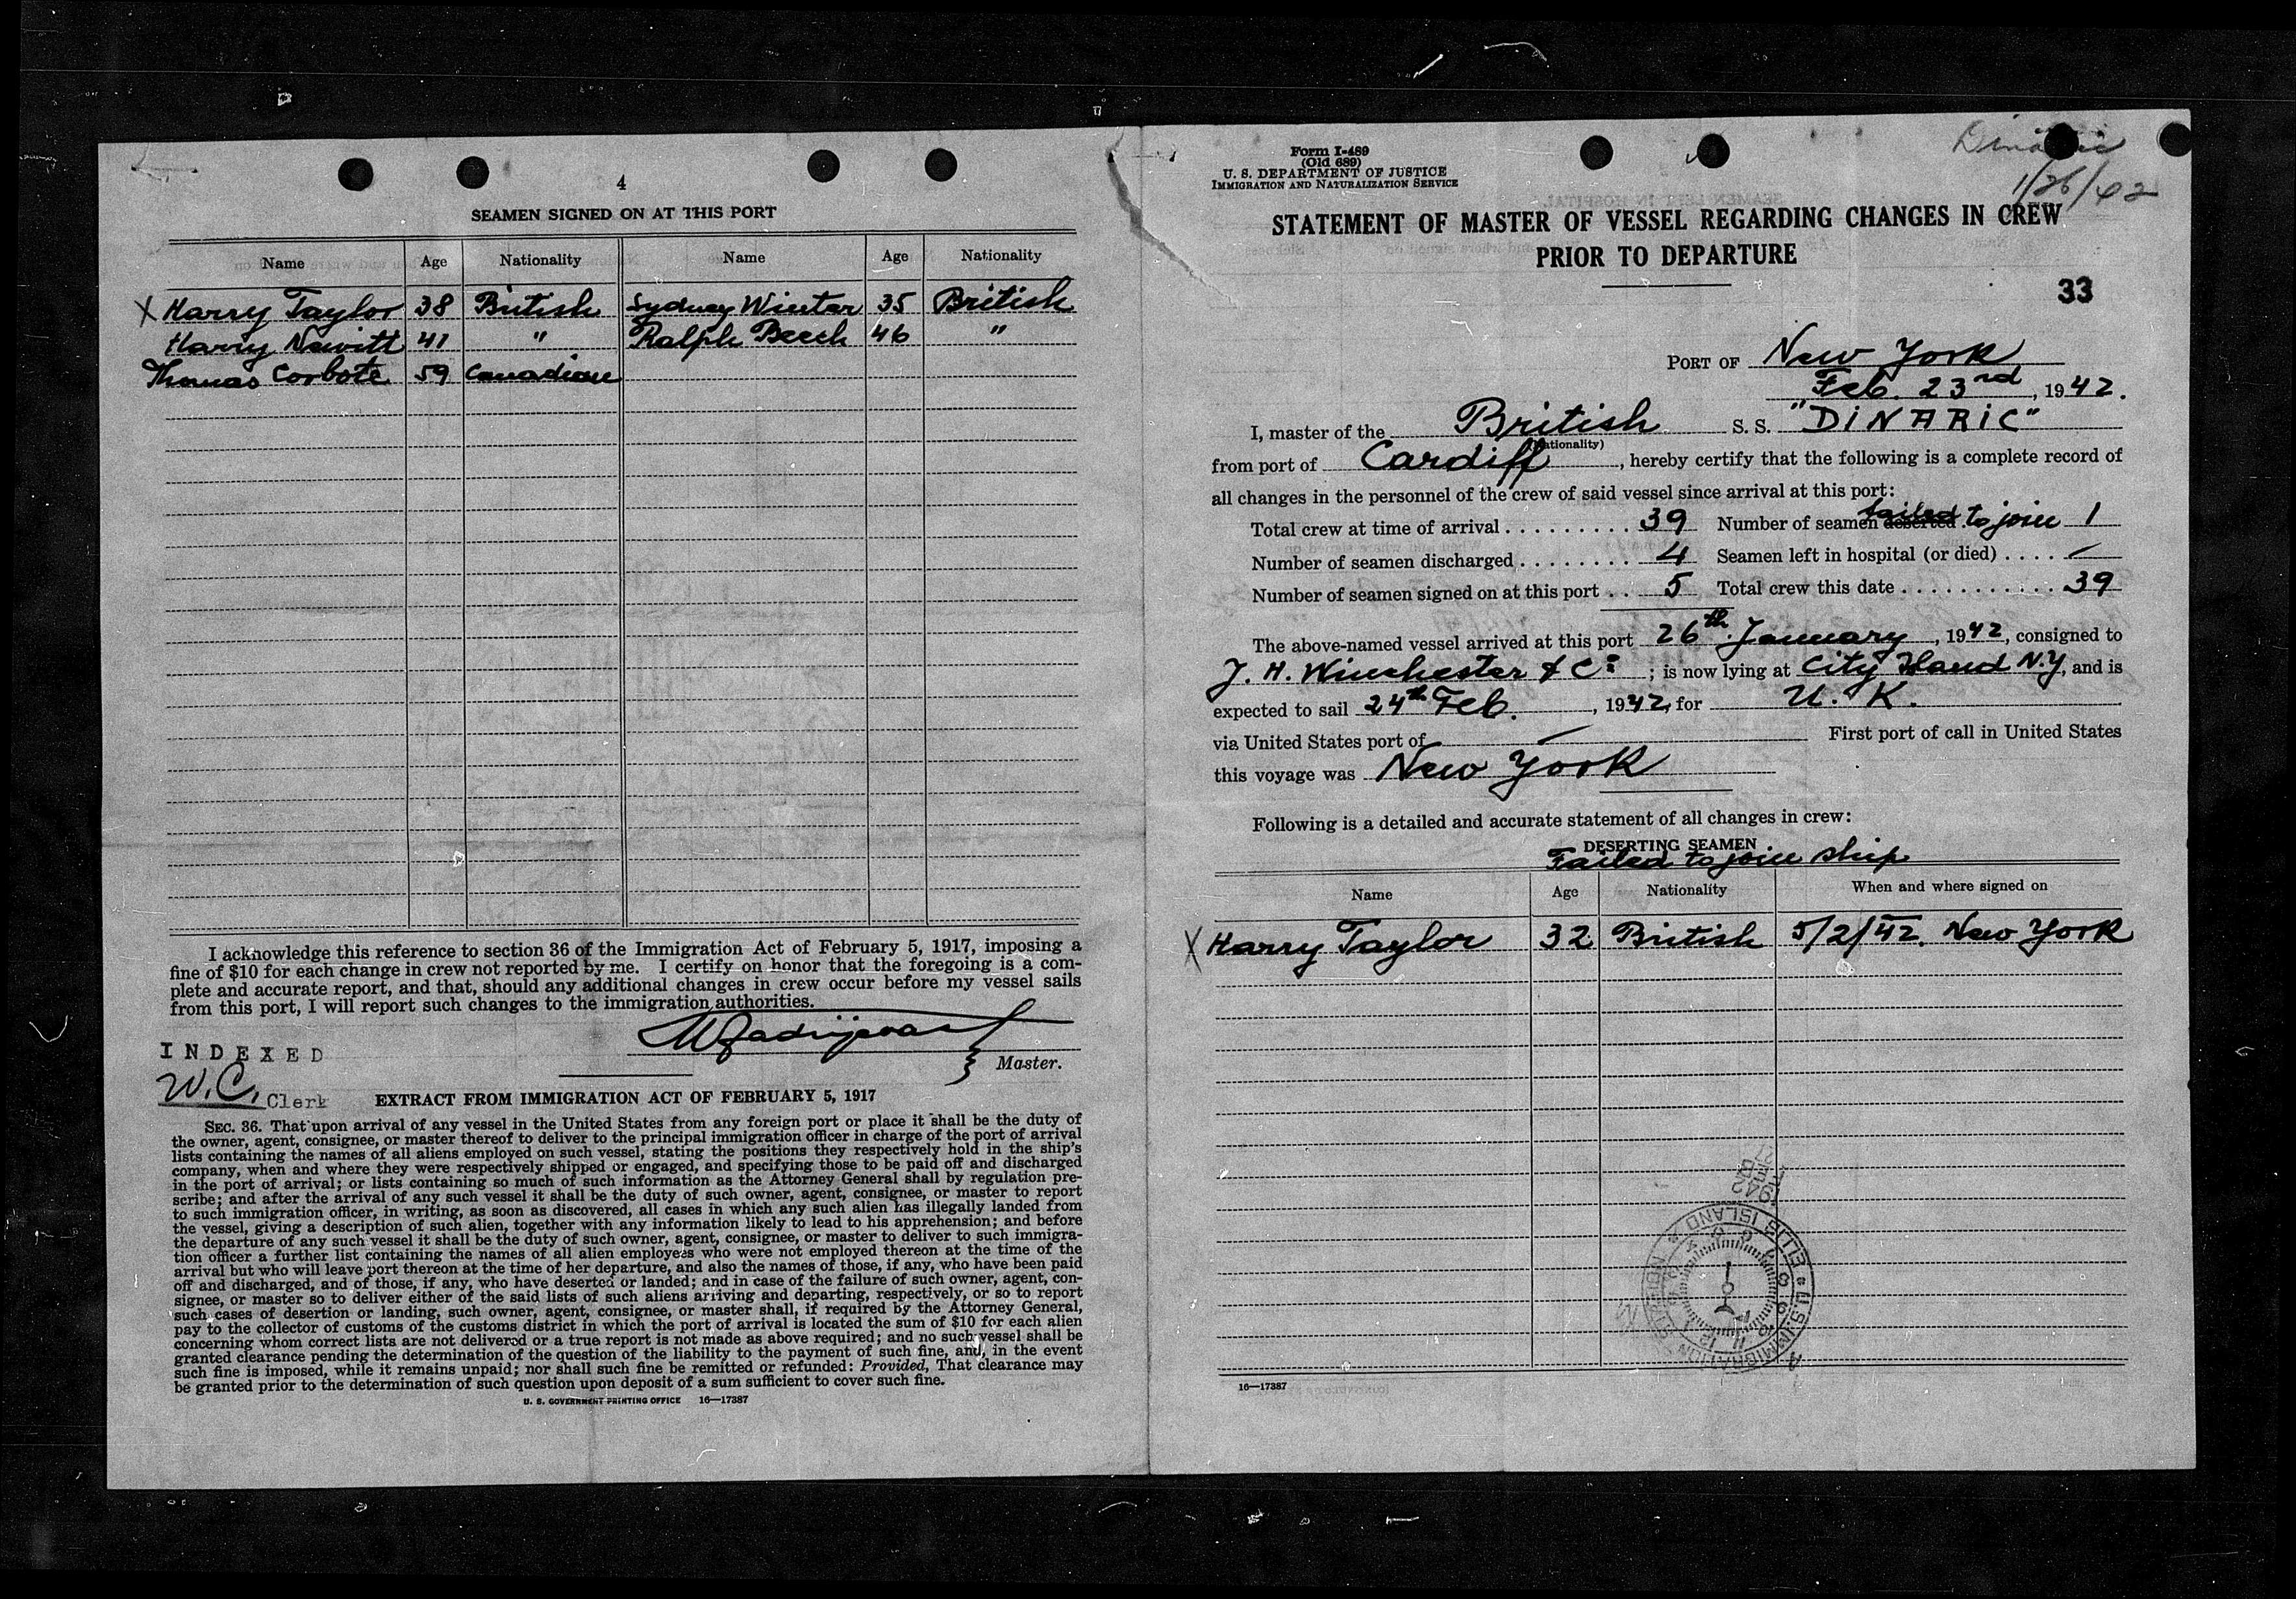 4
SEAMEN SIGNED ON AT THIS PORT
Name Age Nationality Name Age Nationality
X Harry Taylor 38 British Sydney Winter 35 British
Harry Newitt 41 " Ralph Beech 46 "
Thomas Corbote 59 Canadian
I acknowledge this reference to section 36 of the Immigration Act of February 5, 1917, imposing a
fine of $10 for each change in crew not reported by me. I certify on honor that the foregoing is a com-
plete and accurate report, and that, should any additional changes in crew occur before my vessel sails
from this port, I will report such changes to the immigration authorities.
Master.
INDEXED
W.C. Clerk
EXTRACT FROM IMMIGRATION ACT OF FEBRUARY 5, 1917
SEC. 36. That upon arrival of any vessel in the United States from any foreign port or place it shall be the duty of
the owner, agent, consignee, or master thereof to deliver to the principal immigration officer in charge of the port of arrival
lists containing the names of all aliens employed on such vessel, stating the positions they respectively hold in the ship's
company, when and where they were respectively shipped or engaged, and specifying those to be paid off and discharged
in the port of arrival; or lists containing so much of such information as the Attorney General shall by regulation pre-
scribe; and after the arrival of any such vessel it shall be the duty of such owner, agent, consignee, or master to report
to such immigration officer, in writing, as soon as discovered, all cases in which any such alien has illegally landed from
the vessel, giving a description of such alien, together with any information likely to lead to his apprehension; and before
the departure of any such vessel it shall be the duty of such owner, agent, consignee, or master to deliver to such immigra-
tion officer a further list containing the names of all alien employees who were not employed thereon at the time of the
arrival but who will leave port thereon at the time of her departure, and also the names of those, if any, who have been paid
off and discharged, and of those, if any, who have deserted or landed; and in case of the failure of such owner, agent, con-
signee, or master so to deliver either of the said lists of such aliens arriving and departing, respectively, or so to report
such cases of desertion or landing, such owner, agent, consignee, or master shall, if required by the Attorney General,
pay to the collector of customs of the customs district in which the port of arrival is located the sum of $10 for each alien
concerning whom correct lists are not delivered or a true report is not made as above required; and no such vessel shall be
granted clearance pending the determination of the question of the liability to the payment of such fine, and, in the event
such fine is imposed, while it remains unpaid; nor shall such fine be remitted or refunded: Provided, That clearance may
be granted prior to the determination of such question upon deposit of a sum sufficient to cover such fine.
U. S. GOVERNMENT PRINTING OFFICE 16—17387
Form I-489
(Old 689)
U. S. DEPARTMENT OF JUSTICE
IMMIGRATION AND NATURALIZATION SERVICE
Dinaric
1/26/42
STATEMENT OF MASTER OF VESSEL REGARDING CHANGES IN CREW
PRIOR TO DEPARTURE
33
PORT OF New York
Feb. 23rd, 1942.
I, master of the British S. S. "DINARIC"
(Nationality)
from port of Cardiff, hereby certify that the following is a complete record of
all changes in the personnel of the crew of said vessel since arrival at this port:
Total crew at time of arrival . . . . . . . . . 39 Number of seamen deserted failed to join 1
Number of seamen discharged . . . . . . . . 4 Seamen left in hospital (or died) . . . . —
Number of seamen signed on at this port . . 5 Total crew this date . . . . . . . . . . . 39
The above-named vessel arrived at this port 26th January, 1942, consigned to
J. H. Winchester & Co; is now lying at City Island N.Y., and is
expected to sail 24th Feb., 1942, for U. K.
via United States port of — First port of call in United States
this voyage was New York
Following is a detailed and accurate statement of all changes in crew:
DESERTING SEAMEN
Failed to join ship
Name Age Nationality When and where signed on
X Harry Taylor 32 British 5/2/42. New York
1942
U.S. IMMIGRATION
ELLIS ISLAND
16—17387